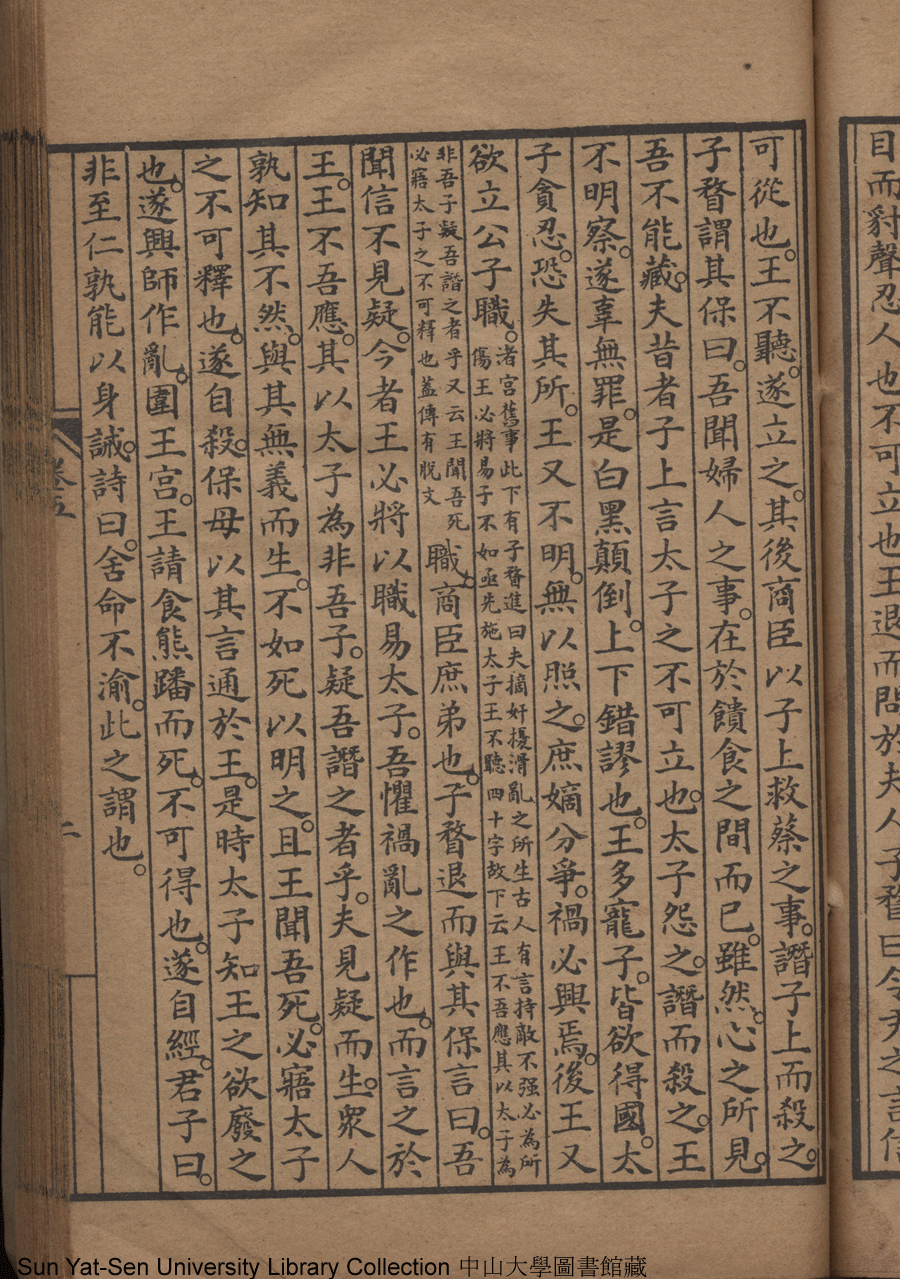 目而豺聲忍人也不可立也王退而問於夫人子瞀曰令尹之言信
可從也。王不聽。遂立之。其後商臣以子上救蔡之事。譖子上而殺之。
子瞀謂其保曰。吾聞婦人之事。在於饋食之間而已。雖然。心之所見。
吾不能藏。夫昔者子上言太子之不可立也。太子怨之。譖而殺之。王
不明察。遂辜無罪。是白黑顛倒。上下錯謬也。王多寵子。皆欲得國。太
子貪忍。恐失其所。王又不明。無以照之。庶嫡分爭。禍必興焉。後王又
欲立公子職。
渚宮舊事此下有子瞀進曰夫摘奸擾滑亂之所生古人有言持敵不强必為所
傷王必將易子不如亟先施太子王不聽四十字故下云王不吾應其以太子為
非吾子疑吾譖之者乎又云王聞吾死
必寤太子之不可釋也蓋傳有脫文
職。商臣庶弟也。子瞀退而與其保言曰。吾
聞信不見疑。今者王必將以職易太子。吾懼禍亂之作也。而言之於
王。王不吾應。其以太子為非吾子。疑吾譖之者乎。夫見疑而生。衆人
孰知其不然。與其無義而生。不如死以明之。且王聞吾死。必寤太子
之不可釋也。遂自殺。保母以其言通於王。是時太子知王之欲廢之
也。遂興師作亂。圍王宮。王請食熊蹯而死。不可得也。遂自經。君子曰。
非至仁孰能以身誡。詩曰。舍命不渝。此之謂也。
卷五
二
Sun Yat-Sen University Library Collection 中山大學圖書館藏